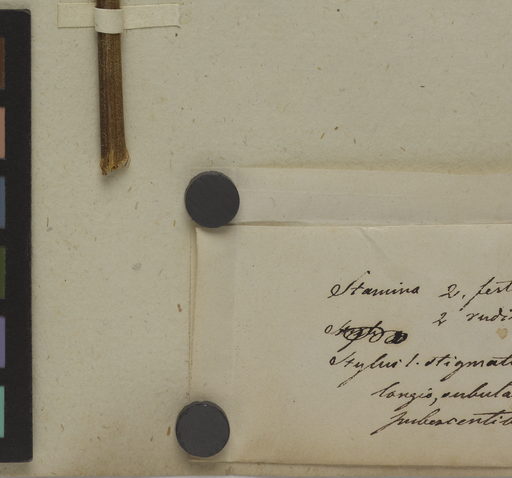 Stamina 2, fert
2 rudi
Stylus 1. stigmat
longis, subula
pubescentib